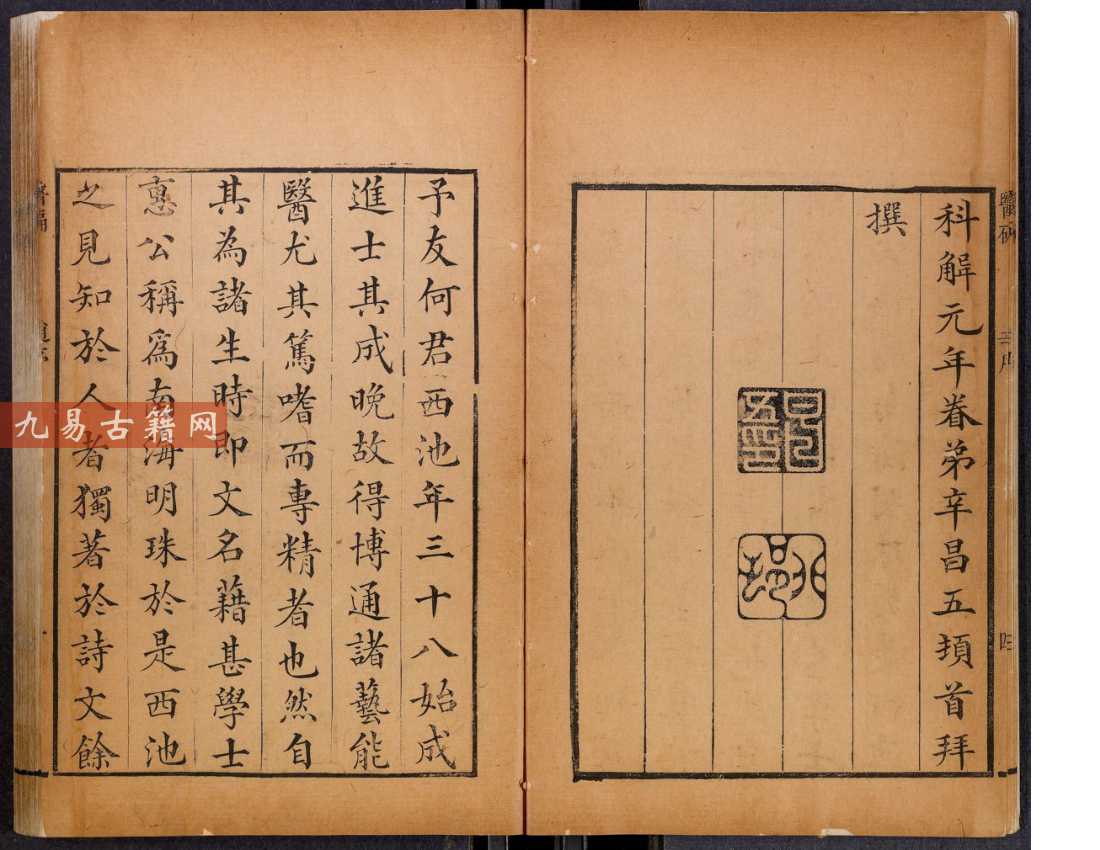 科解元年眷弟辛昌五頓首拜
撰
予友何君西池年三十八始成
進士其成晚故得博通諸藝能
醫尤其篤嗜而專精者也然自
其為諸生時即文名藉甚學士
惠公稱爲南海明珠於是西池
之見知於人者獨著於詩文餘
九易古籍网